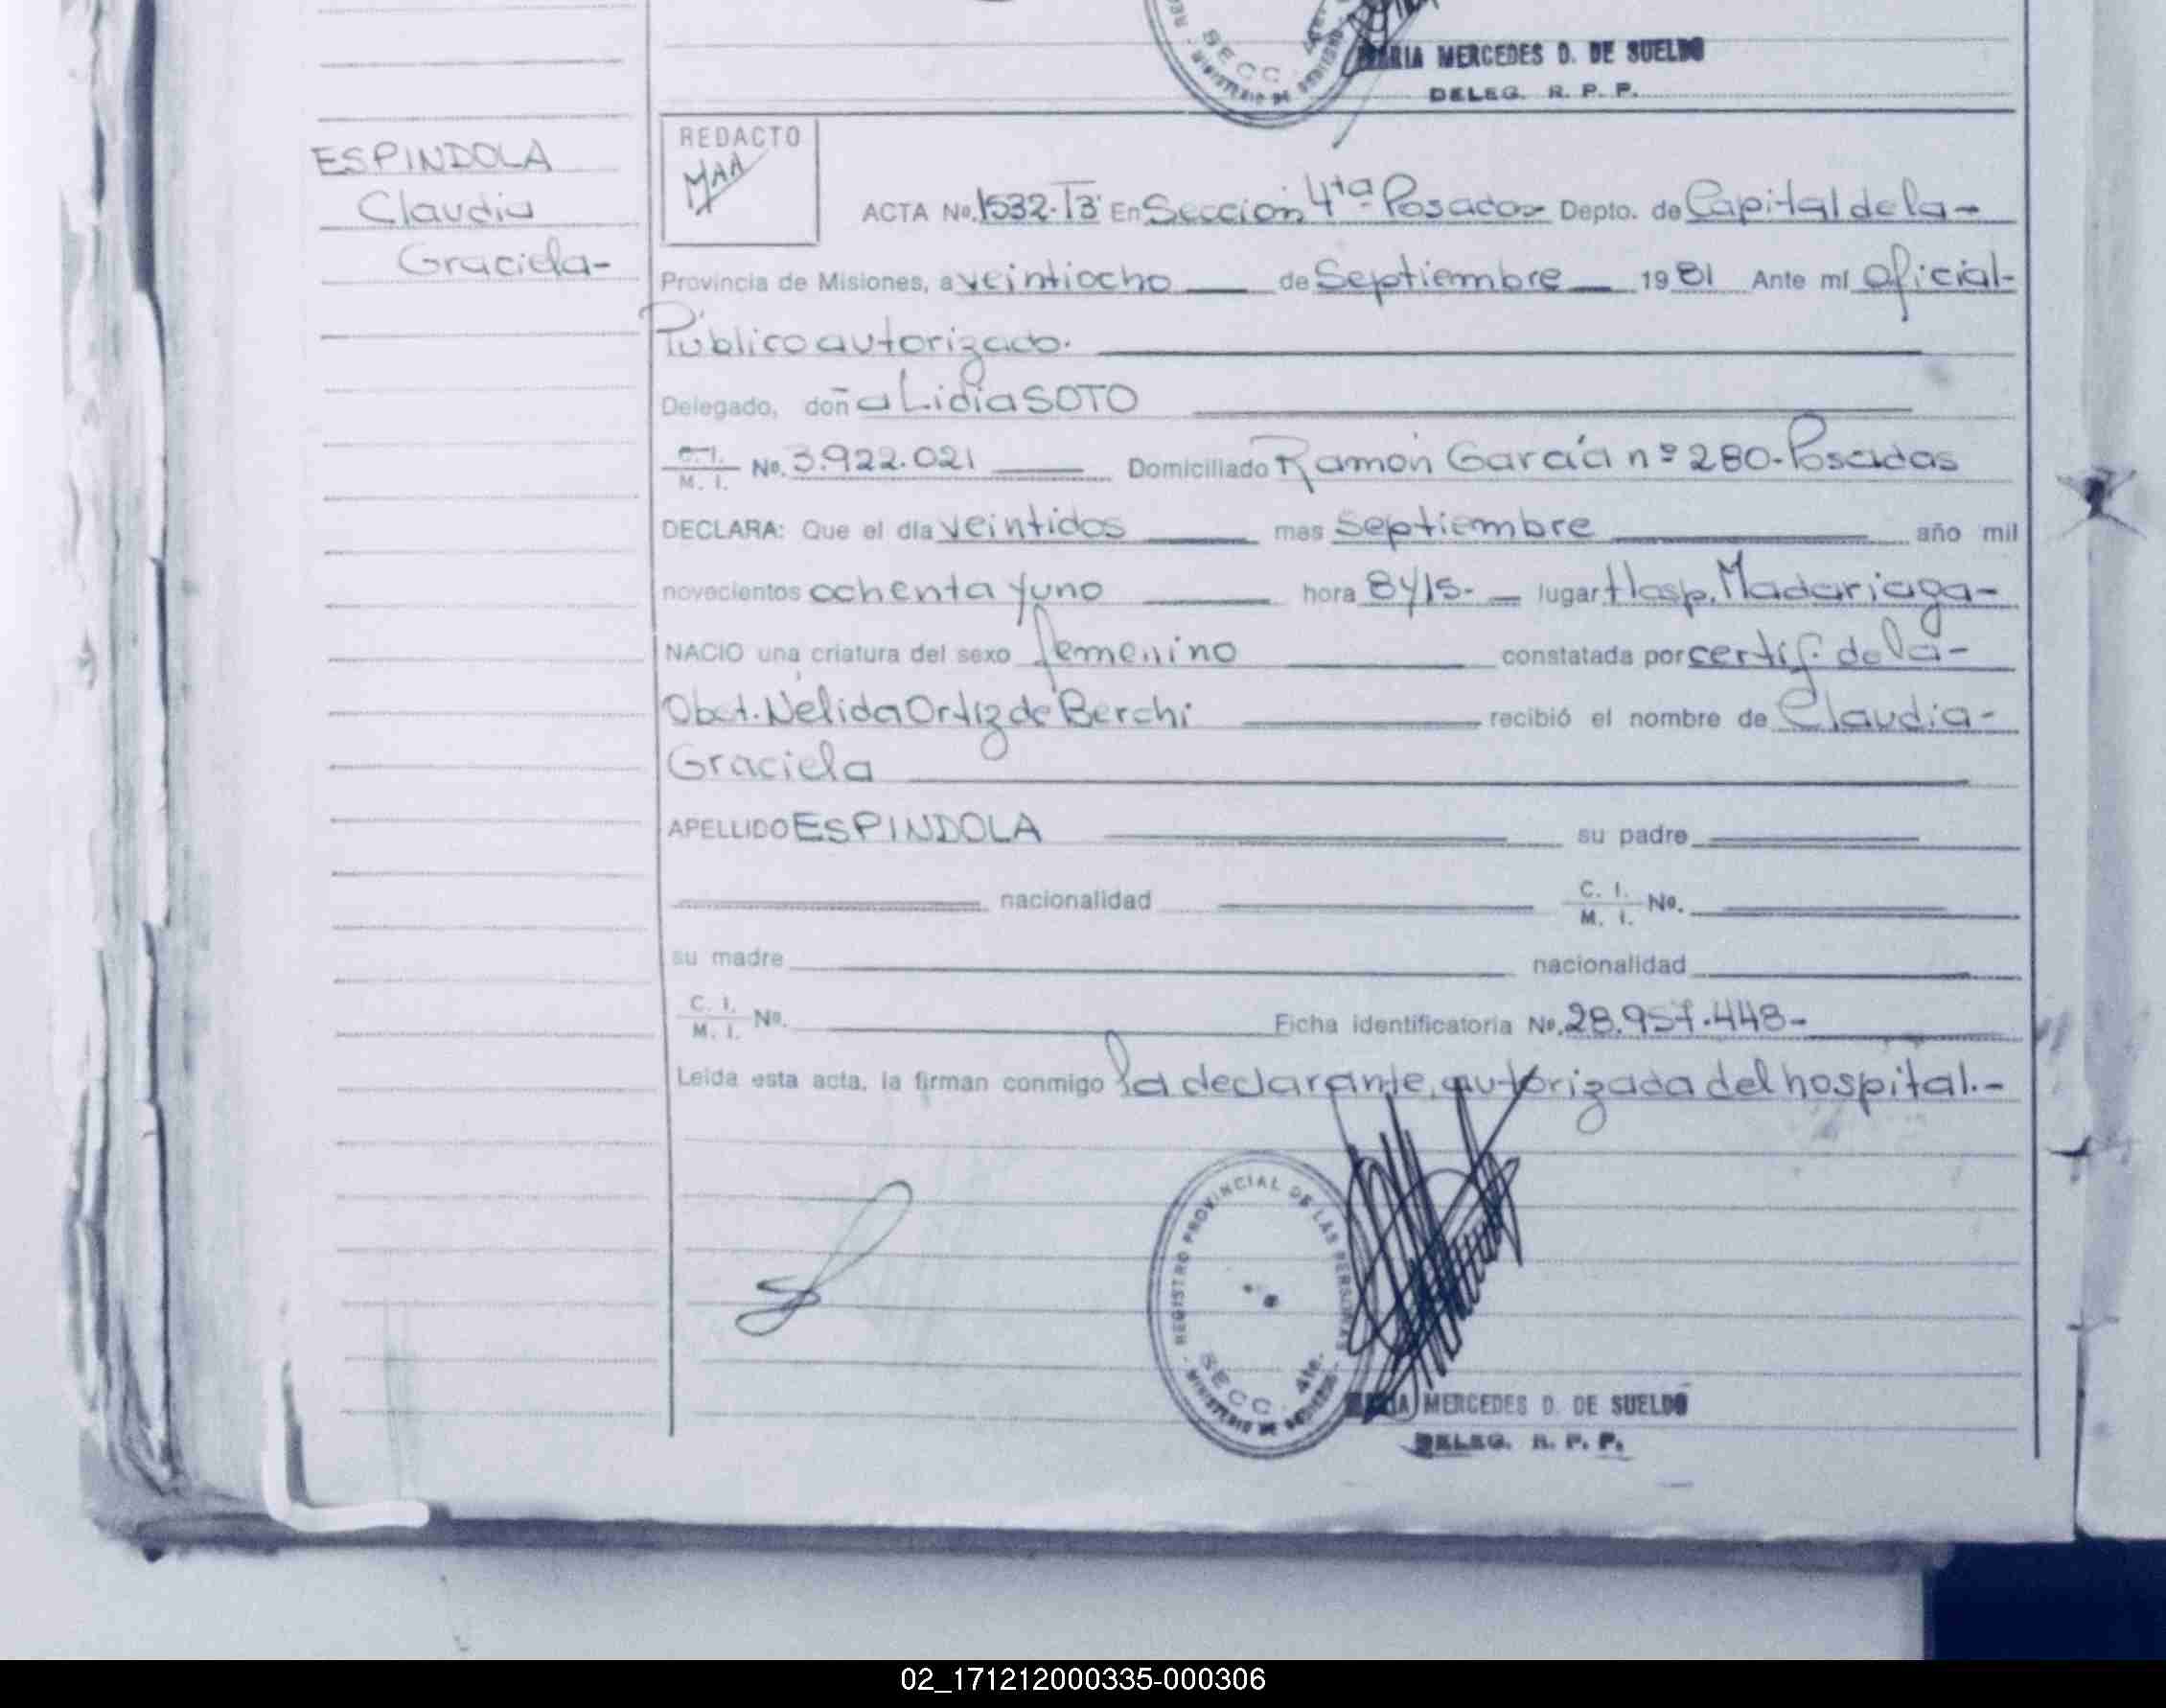 MARIA MERCEDES D. DE SUELDO
DELEG. R. P. P.
ESPINDOLA
Claudia
Graciela-
REDACTO
MAA
ACTA No. 1532-T3 En Sección 4ta Posadas Depto. de Capital de la-
Provincia de Misiones, a veintiocho de Septiembre 1981 Ante mí Oficial-
Público autorizado.
Delegado, doña Lidia SOTO
C.I. / M. I. No. 3.922.021 Domiciliado Ramón García nº 280-Posadas
DECLARA: Que el día veintidos mes septiembre año mil
novecientos ochenta y uno hora 8y15- lugar Hosp. Madariaga-
NACIO una criatura del sexo femenino constatada por certif. de la-
Obst. Nélida Ortiz de Berchi recibió el nombre de Claudia-
Graciela
APELLIDO ESPINDOLA su padre
nacionalidad C. I. / M. I. No.
su madre nacionalidad
C. I. / M. I. No. Ficha identificatoria No. 28.957.448-
Leída esta acta, la firman conmigo la declarante, autorizada del hospital.-
REGISTRO PROVINCIAL DE LAS PERSONAS
SECC. 4ta.
MINISTERIO DE GOBIERNO
MARIA MERCEDES D. DE SUELDO
DELEG. R. P. P.
02_171212000335-000306